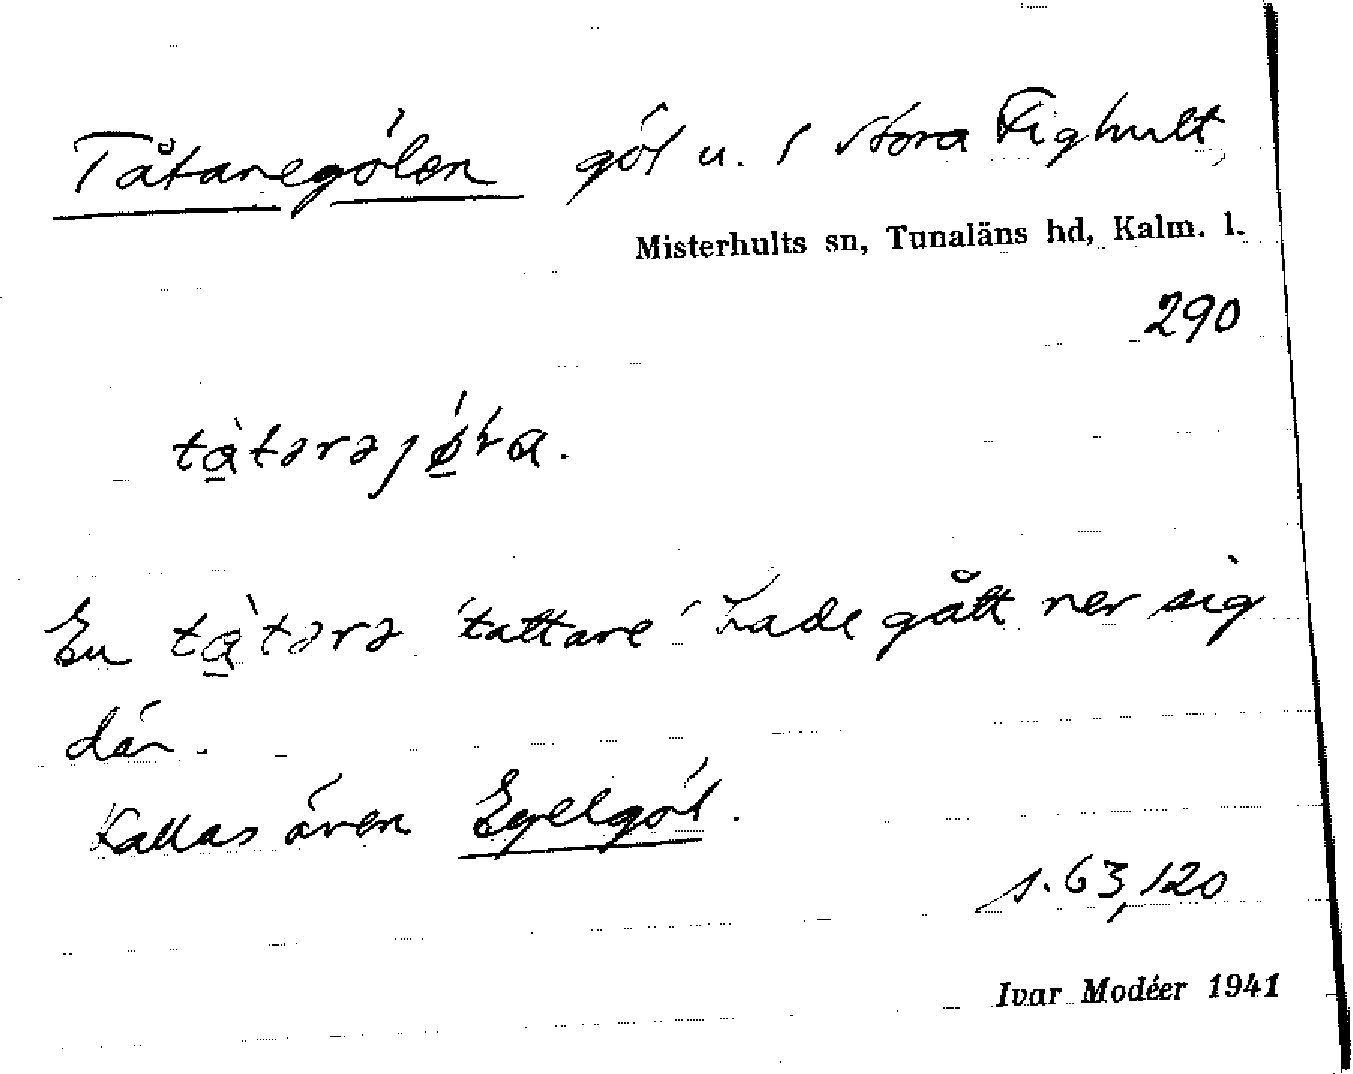 Tåtaregölen göl u. f Stora Fighult,
Misterhults sn, Tunaläns hd, Kalm. l.
290
En tattare hade gått ner sig
där.
Kallas även Egelgöl.
s. 63, 120
Ivar Modéer 1941